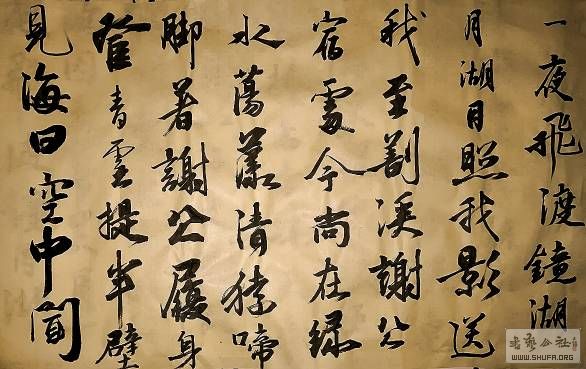 一夜飛渡鏡湖
月湖月照我影送
我至剡溪謝公
宿處今尚在綠
水蕩漾清猿啼
脚著謝公屐身
登青雲梯半壁
見海日空中聞
书艺公社
WWW.SHUFA.ORG